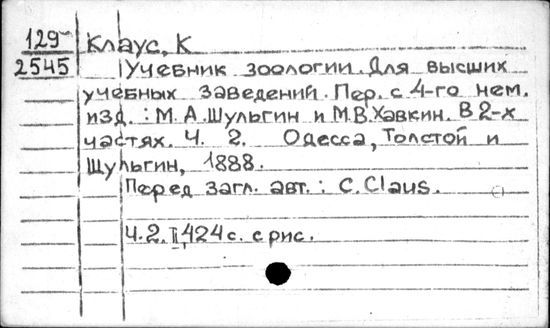 129
2545
Клаус, К
Учебник зоологии. Для высших
учебных заведений. Пер. с 4-го нем.
изд. : М. А. Шульгин и М.В. Хавкин. В 2-х
частях. Ч. 2. Одесса, Толстой и
Шульгин, 1888.
Перед загл. авт. : C. Claus.
Ч. 2. II, 424 с. с рис.